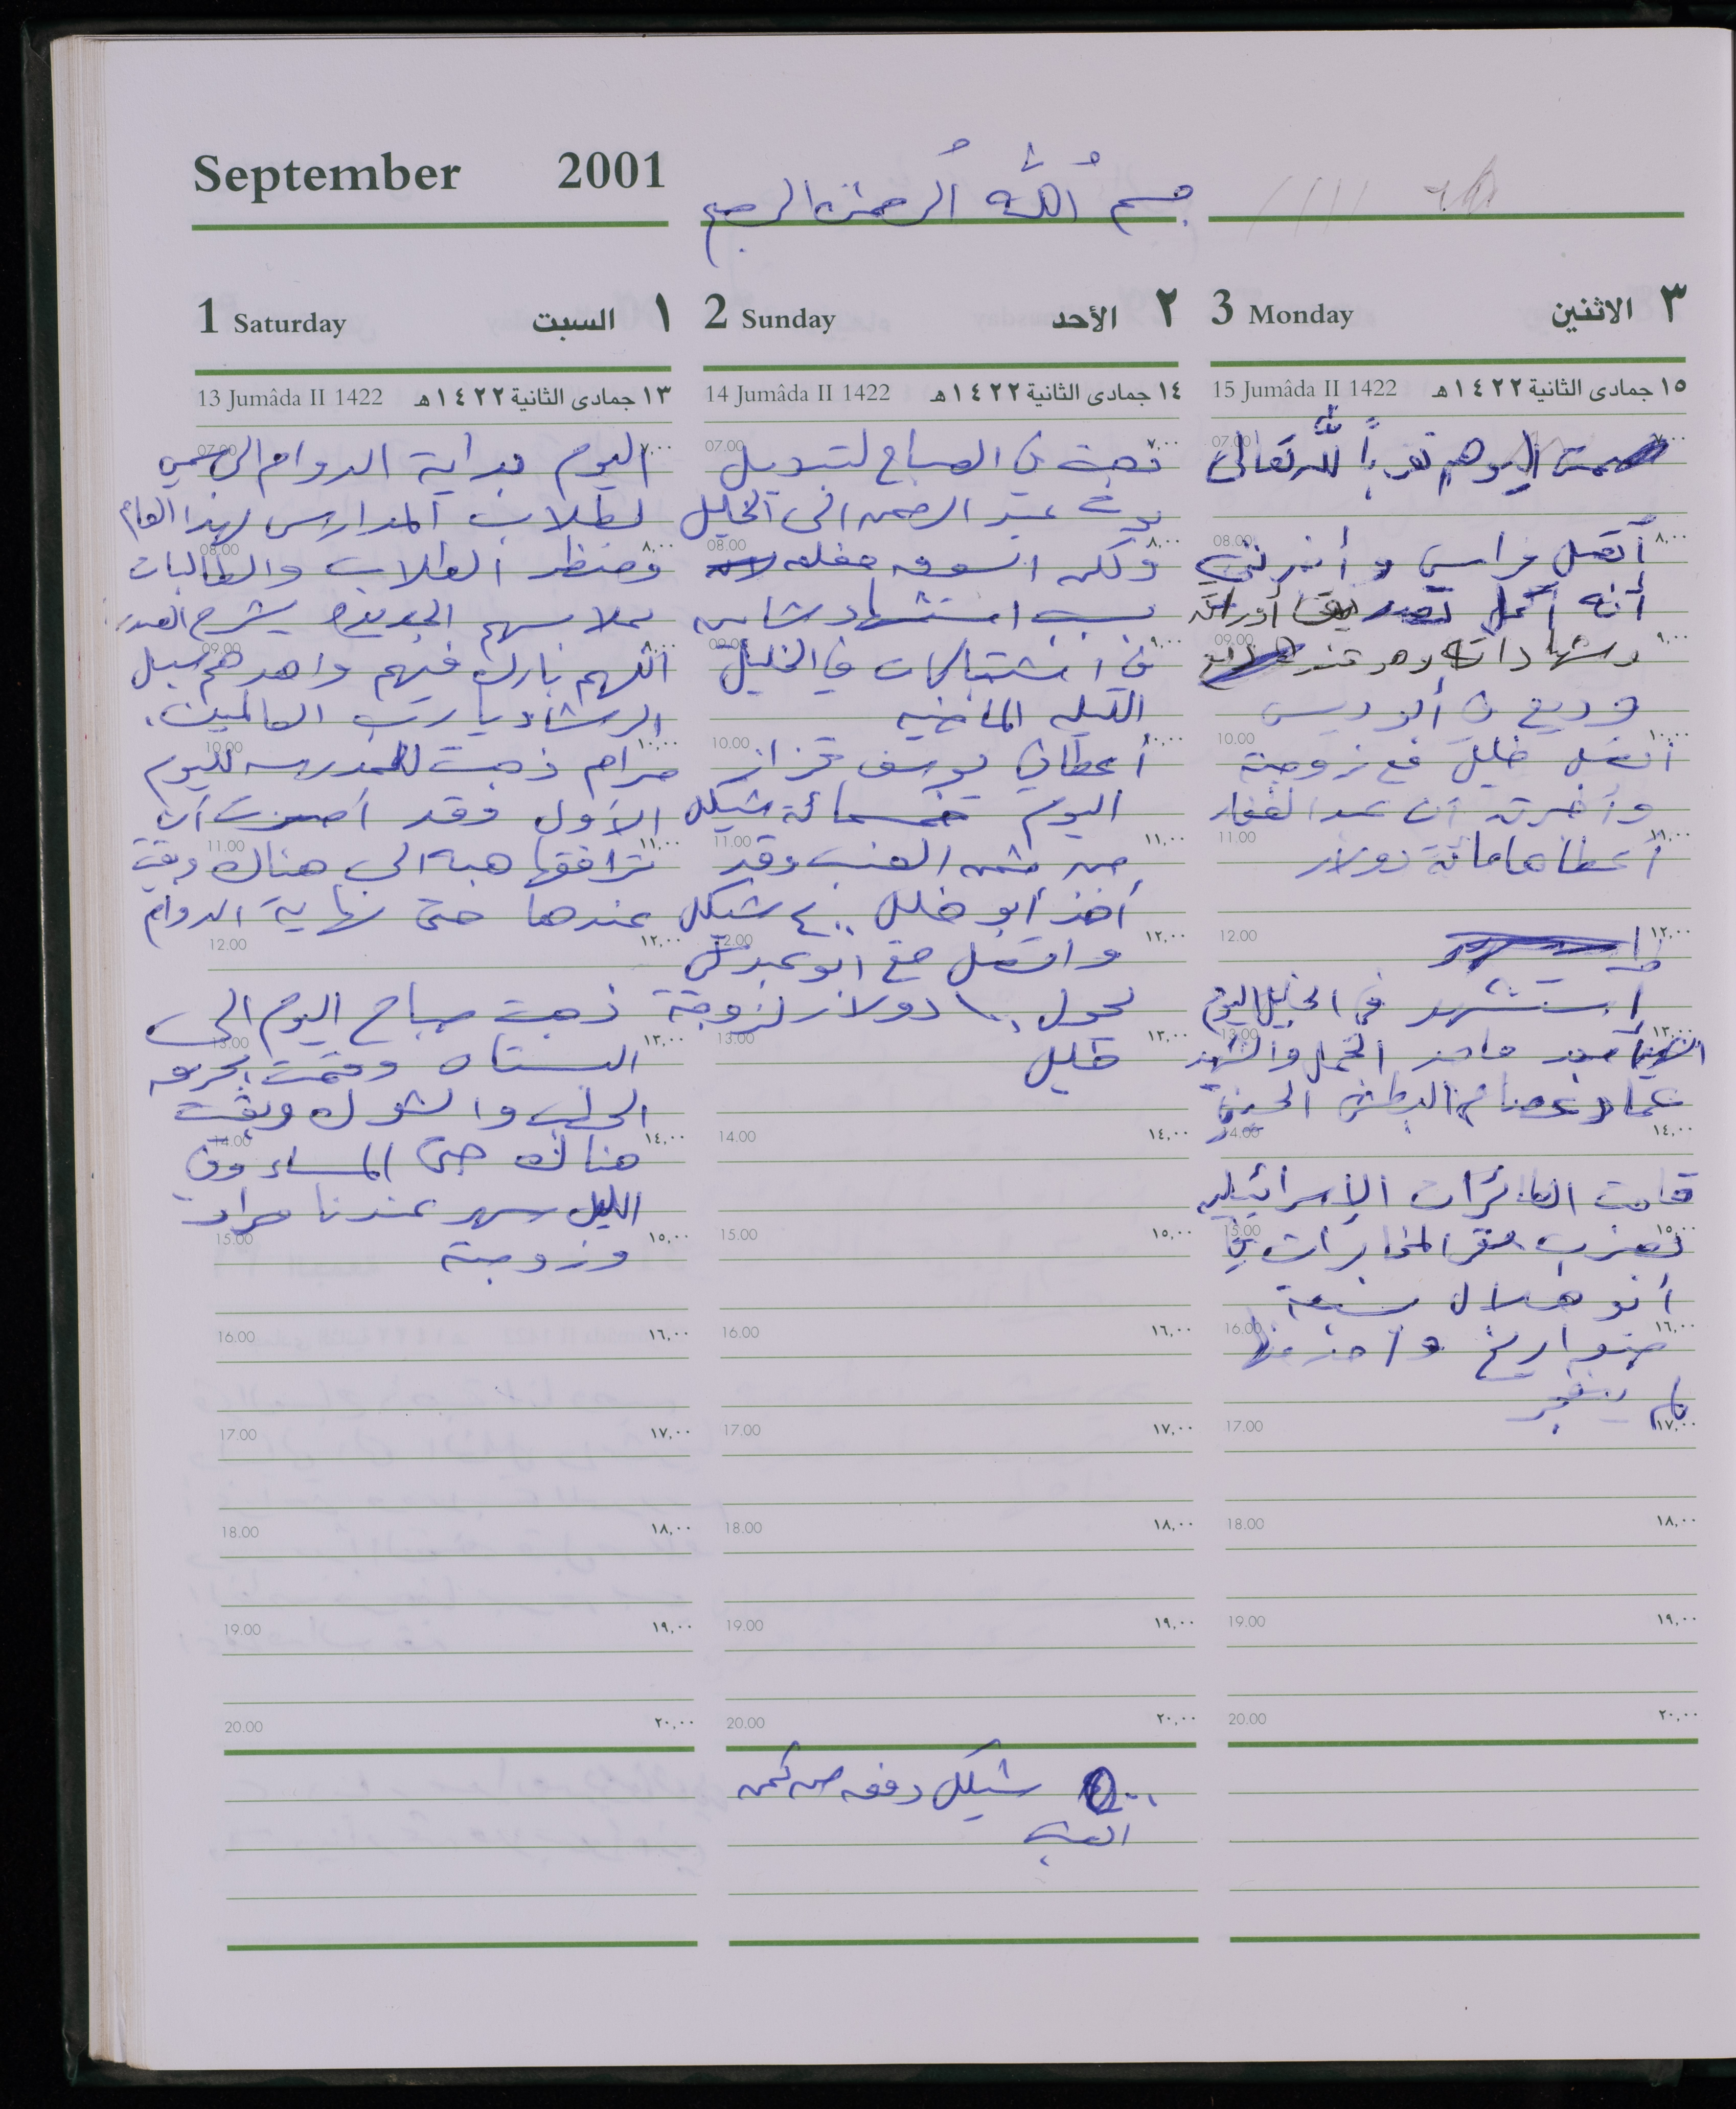 September 2001
بسم الله الرحمن الرحيم
1 Saturday السبت ١
13 Jumâda II 1422 ١٣ جمادى الثانية ١٤٢٢هـ
اليوم بداية الدوام الرسمي
لطلاب المدارس لهذا العام
ومنظر الطلاب والطالبات
بملابسهم الجديدة يشرح الصدر
اللهم بارك فيهم واهدهم سبل
الرشاد يا رب العالمين.
مرام ذهبت للمدرسه لليوم
الأول وقد أصرت أن
ترافقها هبه الى هناك وبقيت
عندها حتى نهاية الدوام
ذهبت صباح اليوم الى
البستان وقمت بحرق
الحطب والشوك وبقيت
هناك حتى المساء وفي
الليل سهر عندنا مراد
وزوجته
07.00 ٧,٠٠
08.00 ٨,٠٠
09.00 ٩,٠٠
10.00 ١٠,٠٠
11.00 ١١,٠٠
12.00 ١٢,٠٠
13.00 ١٣,٠٠
14.00 ١٤,٠٠
15.00 ١٥,٠٠
16.00 ١٦,٠٠
17.00 ١٧,٠٠
18.00 ١٨,٠٠
19.00 ١٩,٠٠
20.00 ٢٠,٠٠
2 Sunday الأحد ٢
14 Jumâda II 1422 ١٤ جمادى الثانية ١٤٢٢هـ
في الصباح لتبديل
عبد الرحمن الى الخليل
ولكن السوق مغلق
بسبب استشهاد شابين
في اشتباكات في الخليل
الليله الماضيه
أعطاني يوسف قزاز
اليوم خمسمائة شيكل
من ثمن العنب وقد
أخذ أبو خليل ٤٠٠ شيكل
واتصل مع ابو
لحول ١٠٠ دولار لزوجة
خليل
07.00 ٧,٠٠
08.00 ٨,٠٠
09.00 ٩,٠٠
10.00 ١٠,٠٠
11.00 ١١,٠٠
12.00 ١٢,٠٠
13.00 ١٣,٠٠
14.00 ١٤,٠٠
15.00 ١٥,٠٠
16.00 ١٦,٠٠
17.00 ١٧,٠٠
18.00 ١٨,٠٠
19.00 ١٩,٠٠
20.00 ٢٠,٠٠
٥٠٠ شيكل دفعه من ثمن
العنب
3 Monday الاثنين ٣
15 Jumâda II 1422 ١٥ جمادى الثانية ١٤٢٢هـ
صمت اليوم تقرباً لله تعالى
أتصل فراس و أخبرني
أنه أكمل تصديق أوراقه
وشهاداته وهو عند
وديع في أبو ديس
أتصل خليل مع زوجته
وأخبرته أن عبد الغفار
أعطاها مائة دولار
استشهد في الخليل اليوم
قامت الطائرات الإسرائيليه
بضرب مقر المخابرات في
أبو هلال بسبعة
صواريخ واحد منها
لم ينفجر
07.00 ٧,٠٠
08.00 ٨,٠٠
09.00 ٩,٠٠
10.00 ١٠,٠٠
11.00 ١١,٠٠
12.00 ١٢,٠٠
13.00 ١٣,٠٠
14.00 ١٤,٠٠
15.00 ١٥,٠٠
16.00 ١٦,٠٠
17.00 ١٧,٠٠
18.00 ١٨,٠٠
19.00 ١٩,٠٠
20.00 ٢٠,٠٠